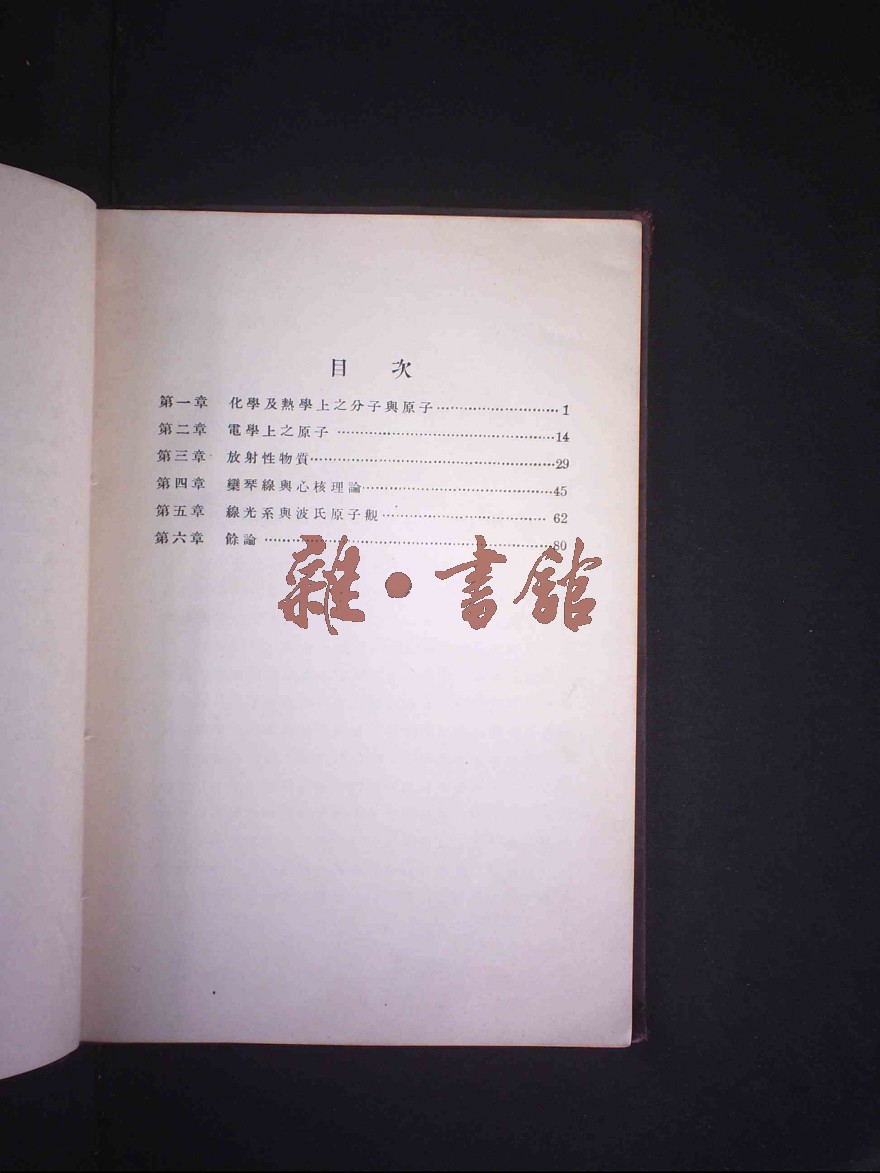 目 次
第一章 化學及熱學上之分子與原子……………………1
第二章 電學上之原子……………………14
第三章 放射性物質……………………29
第四章 欒琴線與心核理論……………………45
第五章 線光系與波氏原子觀……………………62
第六章 餘論……………………80
雜·書館